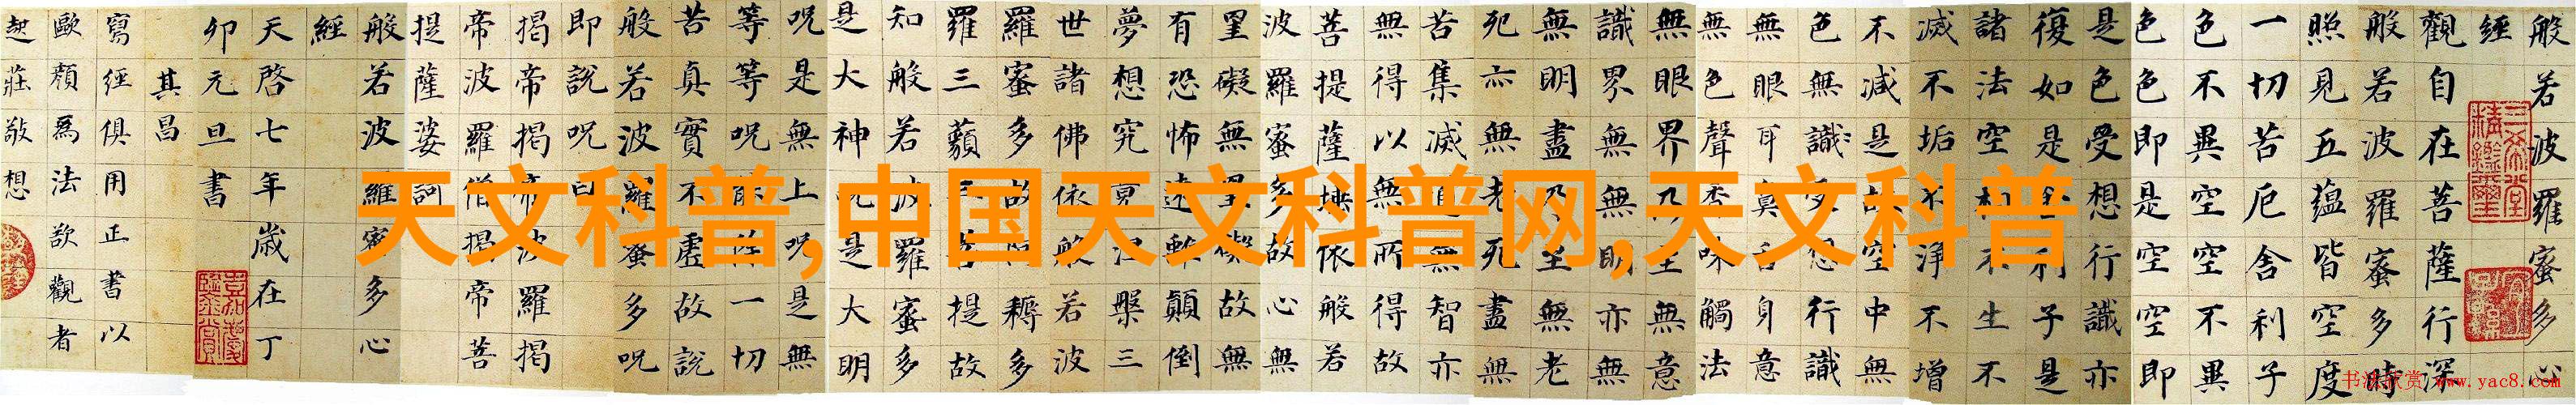 般若波羅蜜多心
經
觀自在菩薩行深
般若波羅蜜多時
照見五蘊皆空度
一切苦厄舍利子
色不異空空不異
色色即是空空即
是色受想行識亦
復如是舍利子是
諸法空相不生不
滅不垢不淨不增
不減是故空中無
色無識受想行識
無眼耳鼻舌身意
無色聲香味觸法
無眼界乃至無意
識界無無明亦無
無明盡乃至無老
死亦無老死盡無
苦集滅道無智亦
無得以無所得故
菩提薩埵依般若
波羅蜜多故心無
罣礙無罣礙故無
有恐怖遠離顛倒
夢想究竟涅槃三
世諸佛依般若波
羅蜜多故阿耨多
羅三藐三菩提故
知般若波羅蜜多
是大神呪是大明
呪是無上呪是無
等等呪能除一切
苦真實不虛故說
般若波羅蜜多呪
即說呪曰
揭帝揭帝波羅揭
帝波羅僧揭帝菩
提薩婆訶
般若波羅蜜多心
經
天啓七年歲在丁
卯元旦書
其昌
寫經俱用正書以
歐顏為法欲觀者
起莊敬想
天文科普,中国天文科普网,天文科普
书法欣赏 www.yac8.com